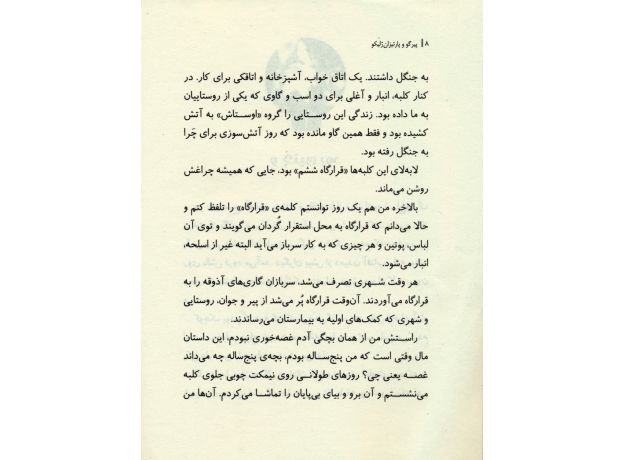 ۸ | پیرگو و پارتیزان ژلیکو
به جنگل داشتند. یک اتاق خواب، آشپزخانه و اتاقکی برای کار. در
کنار کلبه، انبار و آغلی برای دو اسب و گاوی که یکی از روستاییان
به ما داده بود. زندگی این روستایی را گروه «اوستاش» به آتش
کشیده بود و فقط همین گاو مانده بود که روز آتش‌سوزی برای چَرا
به جنگل رفته بود.
لابه‌لای این کلبه‌ها «قرارگاه ششم» بود، جایی که همیشه چراغش
روشن می‌ماند.
بالاخره من هم یک روز توانستم کلمه‌ی «قرارگاه» را تلفظ کنم و
حالا می‌دانم که قرارگاه به محل استقرار گُردان می‌گویند و توی آن
لباس، پوتین و هر چیزی که به کار سرباز می‌آید البته غیر از اسلحه،
انبار می‌شود.
هر وقت شهری تصرف می‌شد، سربازان گاری‌های آذوقه را به
قرارگاه می‌آوردند. آن‌وقت قرارگاه پُر می‌شد از پیر و جوان، روستایی
و شهری که کمک‌های اولیه به بیمارستان می‌رساندند.
راستش من از همان بچگی آدم غصه‌خوری نبودم، این داستان
مال وقتی است که من پنج‌ساله بودم، بچه‌ی پنج‌ساله چه می‌داند
غصه یعنی چی؟ روزهای طولانی روی نیمکت چوبی جلوی کلبه
می‌نشستم و آن برو و بیای بی‌پایان را تماشا می‌کردم. آن‌ها من